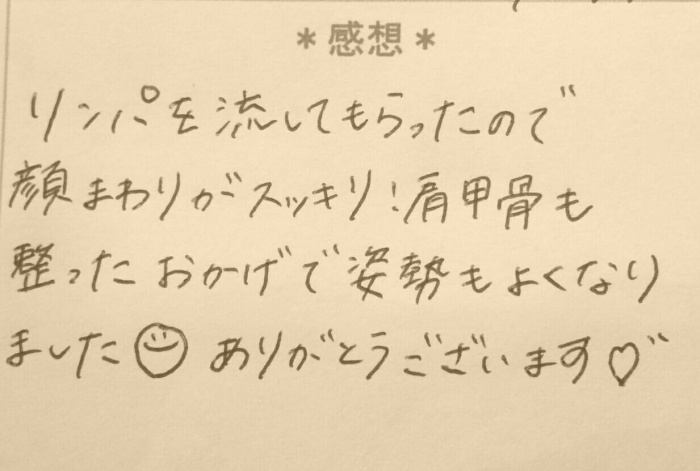 ＊感想＊
リンパを流してもらったので
顔まわりがスッキリ！肩甲骨も
整ったおかげで姿勢もよくなり
ました☺ありがとうございます♡゛